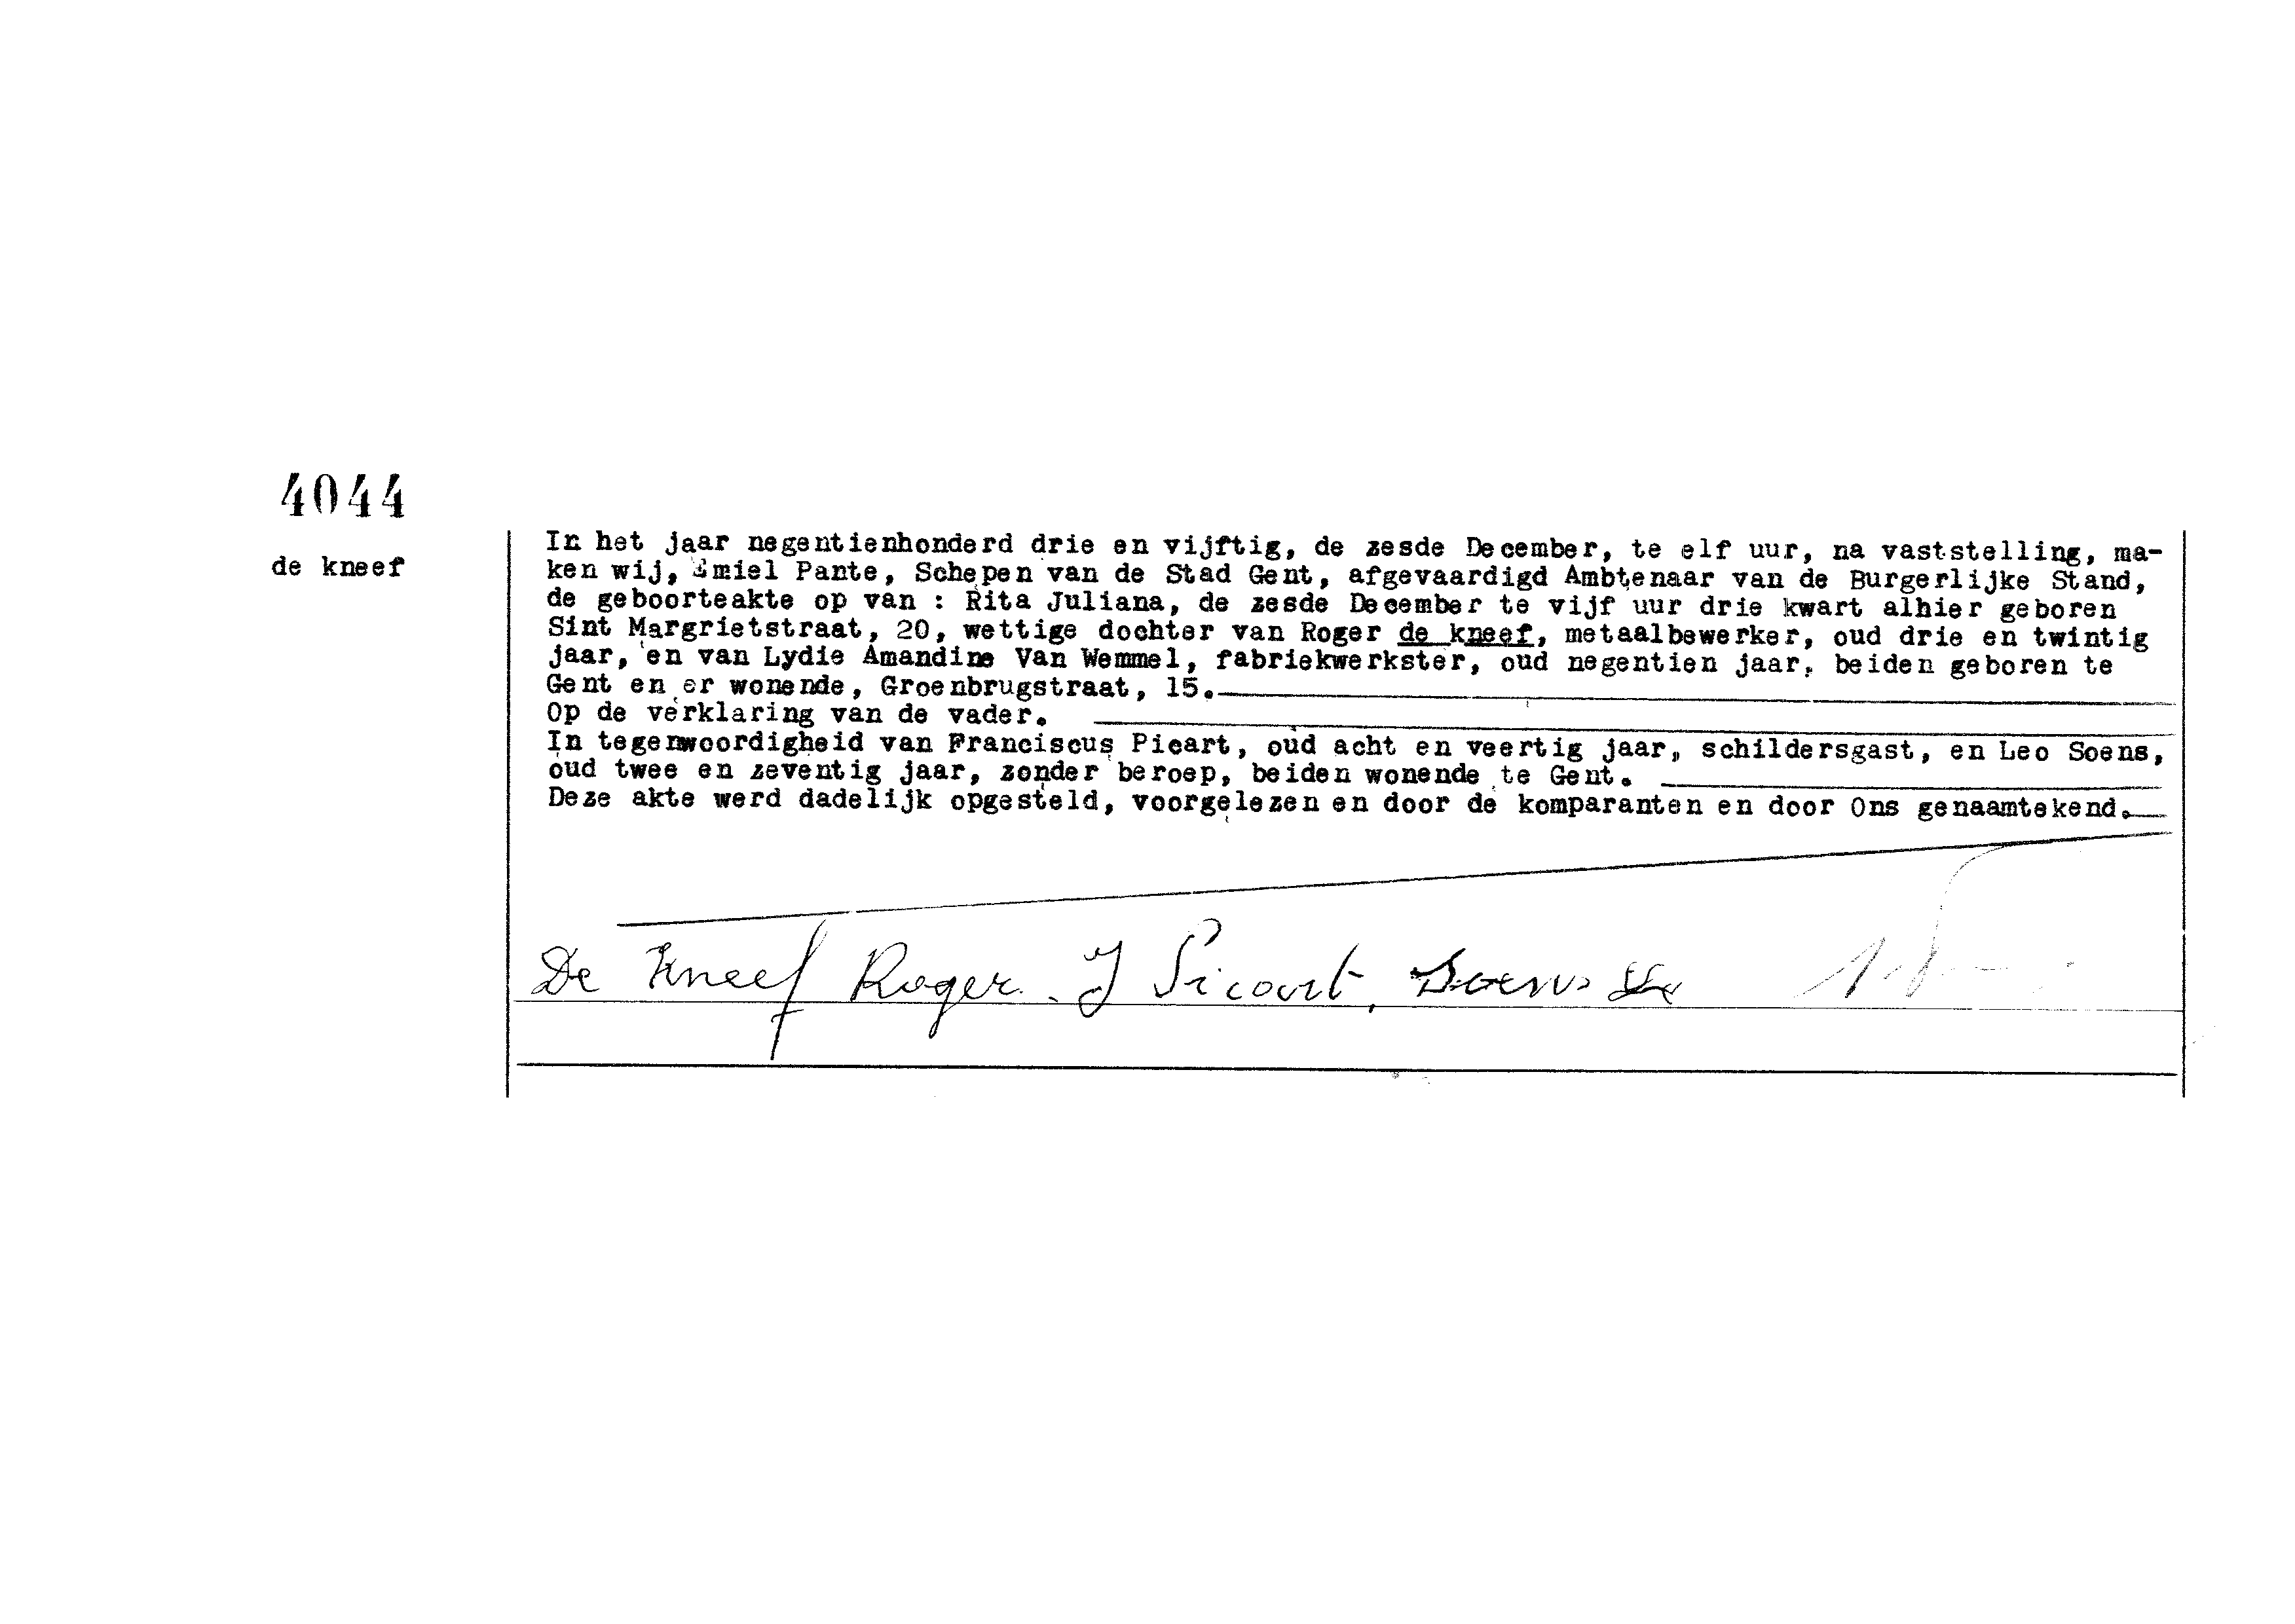 4044
de kneef
In het jaar negentienhonderd drie en vijftig, de zesde December, te elf uur, na vaststelling, ma-
ken wij, Emiel Pante, Schepen van de Stad Gent, afgevaardigd Ambtenaar van de Burgerlijke Stand,
de geboorteakte op van : Rita Juliana, de zesde December te vijf uur drie kwart alhier geboren
Sint Margrietstraat, 20, wettige dochter van Roger de kneef, metaalbewerker, oud drie en twintig
jaar, en van Lydie Amandine Van Wemmel, fabriekwerkster, oud negentien jaar, beiden geboren te
Gent en er wonende, Groenbrugstraat, 15.
Op de verklaring van de vader.
In tegenwoordigheid van Franciscus Picart, oud acht en veertig jaar, schildersgast, en Leo Soens,
oud twee en zeventig jaar, zonder beroep, beiden wonende te Gent.
Deze akte werd dadelijk opgesteld, voorgelezen en door de komparanten en door Ons genaamtekend.
De Kneef Roger. J Picart, Soens